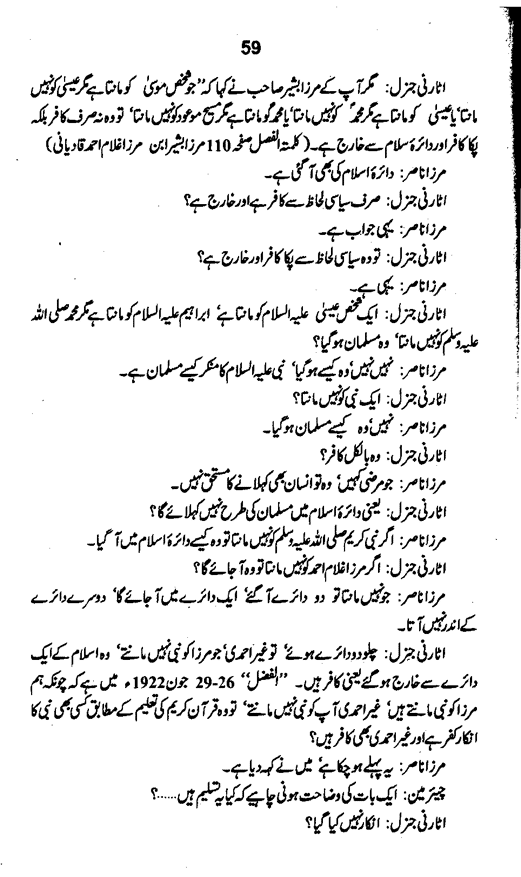 59
اٹارنی جنرل: مگر آپ کے مرزا بشیر صاحب نے کہا کہ ”جو شخص موسیٰ کو مانتا ہے مگر عیسیٰ کو نہیں
مانتا‘ یا عیسیٰ کو مانتا ہے مگر محمدؐ کو نہیں مانتا‘ یا محمد کو مانتا ہے مگر مسیح موعود کو نہیں مانتا‘ تو وہ نہ صرف کافر بلکہ
پکا کافر اور دائرۂ اسلام سے خارج ہے۔ (کلمتہ الفصل صفحہ 110 مرزا بشیر ابن مرزا غلام احمد قادیانی)
مرزا ناصر: دائرۂ اسلام کی بھی آگئی ہے۔
اٹارنی جنرل: صرف سیاسی لحاظ سے کافر ہے اور خارج ہے؟
مرزا ناصر: یہی جواب ہے۔
اٹارنی جنرل: تو وہ سیاسی لحاظ سے پکا کافر اور خارج ہے؟
مرزا ناصر: یہی ہے۔
اٹارنی جنرل: ایک شخص عیسیٰ علیہ السلام کو مانتا ہے‘ ابراہیم علیہ السلام کو مانتا ہے مگر محمد صلی اللہ
علیہ وسلم کو نہیں مانتا‘ وہ مسلمان ہو گیا؟
مرزا ناصر: نہیں نہیں‘ وہ کیسے ہو گیا‘ نبی علیہ السلام کا منکر کیسے مسلمان ہے۔
اٹارنی جنرل: ایک نبی کو نہیں مانتا؟
مرزا ناصر: نہیں‘ وہ کیسے مسلمان ہو گیا۔
اٹارنی جنرل: وہ بالکل کافر؟
مرزا ناصر: جو مرضی کہیں‘ وہ تو انسان بھی کہلانے کا مستحق نہیں۔
اٹارنی جنرل: یعنی دائرۂ اسلام میں مسلمان کی طرح نہیں کہلائے گا؟
مرزا ناصر: اگر نبی کریم صلی اللہ علیہ وسلم کو نہیں مانتا تو وہ کیسے دائرۂ اسلام میں آ گیا۔
اٹارنی جنرل: اگر مرزا غلام احمد کو نہیں مانتا تو وہ آ جائے گا؟
مرزا ناصر: جو نہیں مانتا تو دو دائرے آ گئے‘ ایک دائرے میں آ جائے گا‘ دوسرے دائرے
کے اندر نہیں آتا۔
اٹارنی جنرل: چلو دو دائرے ہوئے‘ تو غیر احمدی‘ جو مرزا کو نبی نہیں مانتے‘ وہ اسلام کے ایک
دائرے سے خارج ہو گئے یعنی کافر ہیں۔ ”الفضل“ 26-29 جون 1922ء میں ہے کہ چونکہ ہم
مرزا کو نبی مانتے ہیں‘ غیر احمدی آپ کو نبی نہیں مانتے‘ تو وہ قرآن کریم کی تعلیم کے مطابق کسی بھی نبی کا
انکار کفر ہے اور غیر احمدی بھی کافر ہیں؟
مرزا ناصر: یہ پہلے ہو چکا ہے‘ میں نے کہہ دیا ہے۔
چیئرمین: ایک بات کی وضاحت ہونی چاہیے کہ کیا یہ تسلیم ہیں......؟
اٹارنی جنرل: انکار نہیں کیا گیا؟